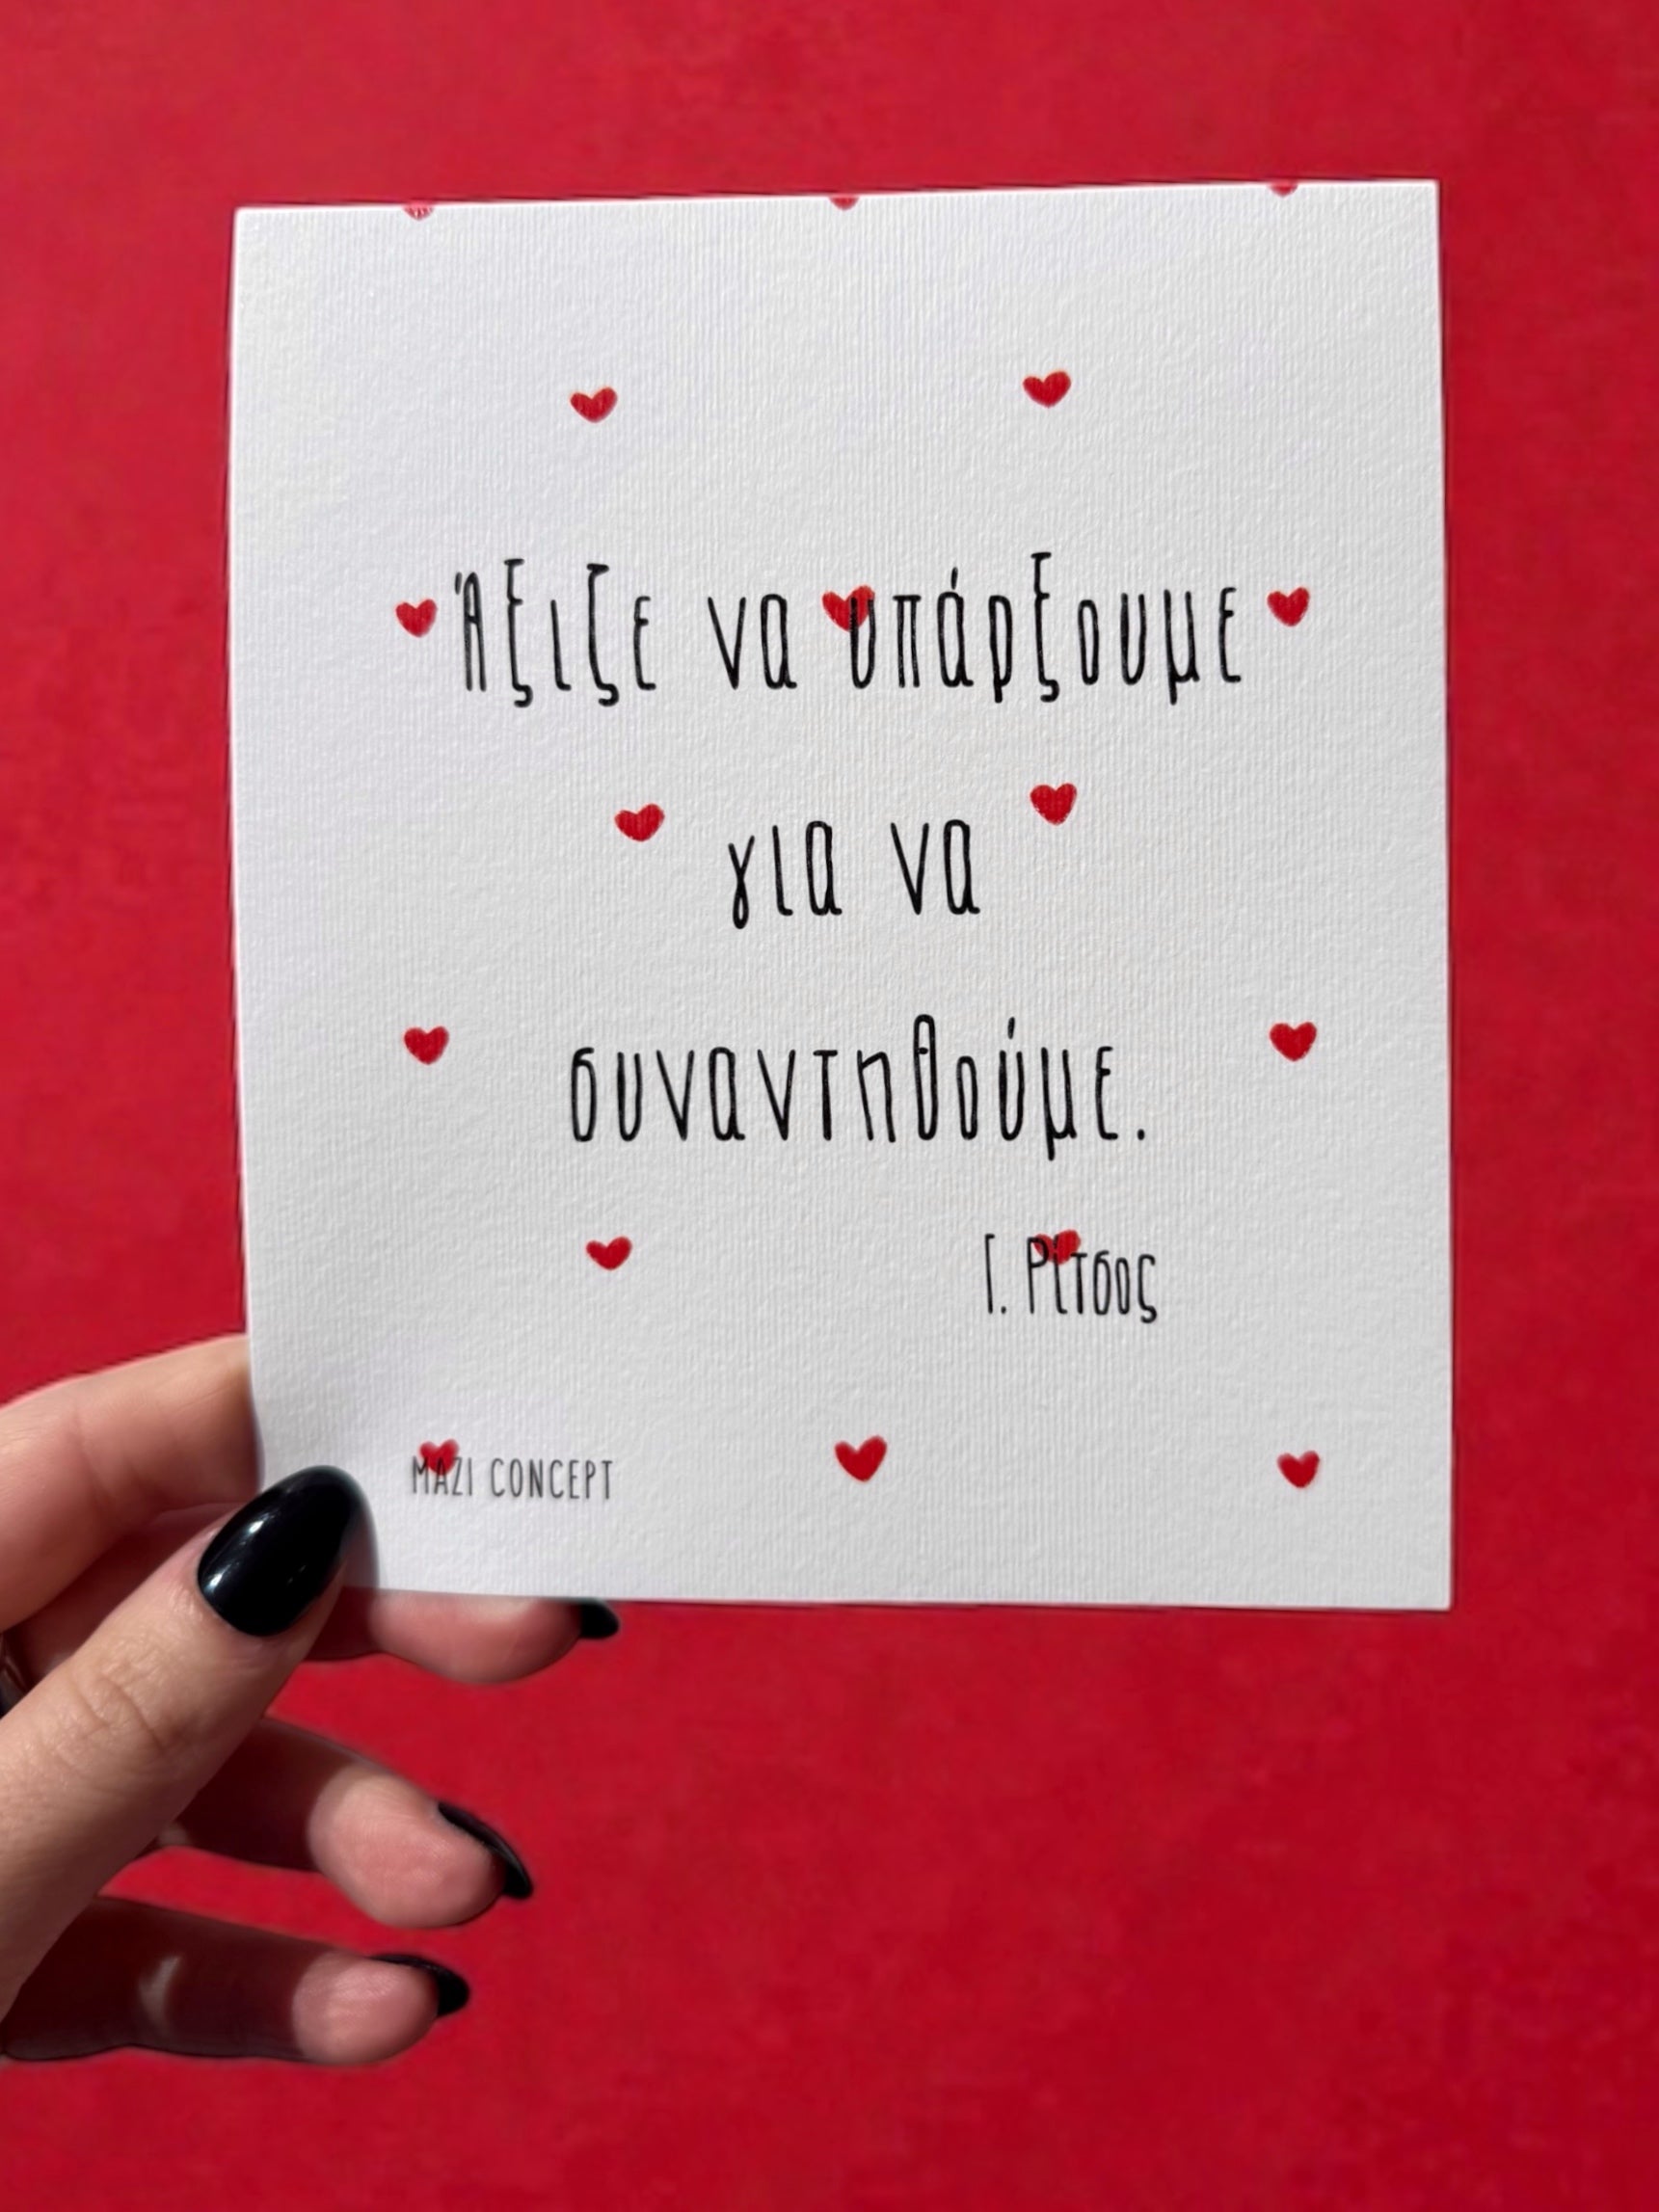 Άξιζε να υπάρξουμε
για να
συναντηθούμε.
Γ. Ρίτσος
MAZI CONCEPT